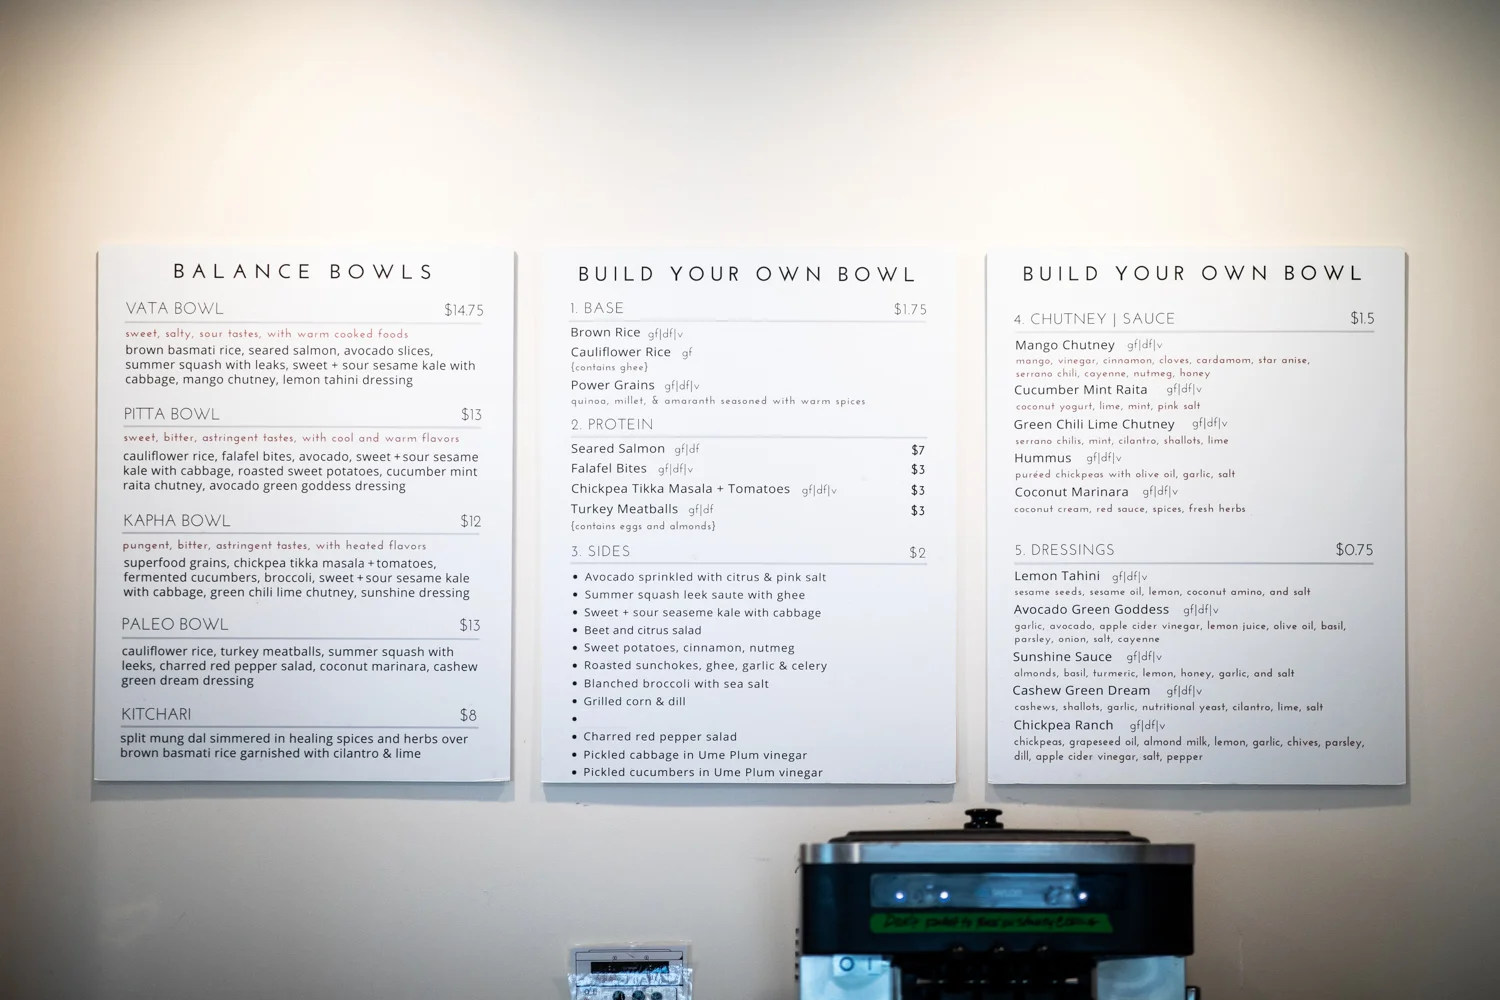 BALANCE BOWLS
VATA BOWL $14.75
sweet, salty, sour tastes, with warm cooked foods
brown basmati rice, seared salmon, avocado slices,
summer squash with leaks, sweet + sour sesame kale with
cabbage, mango chutney, lemon tahini dressing
PITTA BOWL $13
sweet, bitter, astringent tastes, with cool and warm flavors
cauliflower rice, falafel bites, avocado, sweet + sour sesame
kale with cabbage, roasted sweet potatoes, cucumber mint
raita chutney, avocado green goddess dressing
KAPHA BOWL $12
pungent, bitter, astringent tastes, with heated flavors
superfood grains, chickpea tikka masala + tomatoes,
fermented cucumbers, broccoli, sweet + sour sesame kale
with cabbage, green chili lime chutney, sunshine dressing
PALEO BOWL $13
cauliflower rice, turkey meatballs, summer squash with
leeks, charred red pepper salad, coconut marinara, cashew
green dream dressing
KITCHARI $8
split mung dal simmered in healing spices and herbs over
brown basmati rice garnished with cilantro & lime
BUILD YOUR OWN BOWL
1. BASE $1.75
Brown Rice gf|df|v
Cauliflower Rice gf
{contains ghee}
Power Grains gf|df|v
quinoa, millet, & amaranth seasoned with warm spices
2. PROTEIN
Seared Salmon gf|df $7
Falafel Bites gf|df|v $3
Chickpea Tikka Masala + Tomatoes gf|df|v $3
Turkey Meatballs gf|df $3
{contains eggs and almonds}
3. SIDES $2
• Avocado sprinkled with citrus & pink salt
• Summer squash leek saute with ghee
• Sweet + sour seaseme kale with cabbage
• Beet and citrus salad
• Sweet potatoes, cinnamon, nutmeg
• Roasted sunchokes, ghee, garlic & celery
• Blanched broccoli with sea salt
• Grilled corn & dill
•
• Charred red pepper salad
• Pickled cabbage in Ume Plum vinegar
• Pickled cucumbers in Ume Plum vinegar
BUILD YOUR OWN BOWL
4. CHUTNEY | SAUCE $1.5
Mango Chutney gf|df|v
mango, vinegar, cinnamon, cloves, cardamom, star anise,
serrano chili, cayenne, nutmeg, honey
Cucumber Mint Raita gf|df|v
coconut yogurt, lime, mint, pink salt
Green Chili Lime Chutney gf|df|v
serrano chilis, mint, cilantro, shallots, lime
Hummus gf|df|v
puréed chickpeas with olive oil, garlic, salt
Coconut Marinara gf|df|v
coconut cream, red sauce, spices, fresh herbs
5. DRESSINGS $0.75
Lemon Tahini gf|df|v
sesame seeds, sesame oil, lemon, coconut amino, and salt
Avocado Green Goddess gf|df|v
garlic, avocado, apple cider vinegar, lemon juice, olive oil, basil,
parsley, onion, salt, cayenne
Sunshine Sauce gf|df|v
almonds, basil, turmeric, lemon, honey, garlic, and salt
Cashew Green Dream gf|df|v
cashews, shallots, garlic, nutritional yeast, cilantro, lime, salt
Chickpea Ranch gf|df|v
chickpeas, grapeseed oil, almond milk, lemon, garlic, chives, parsley,
dill, apple cider vinegar, salt, pepper